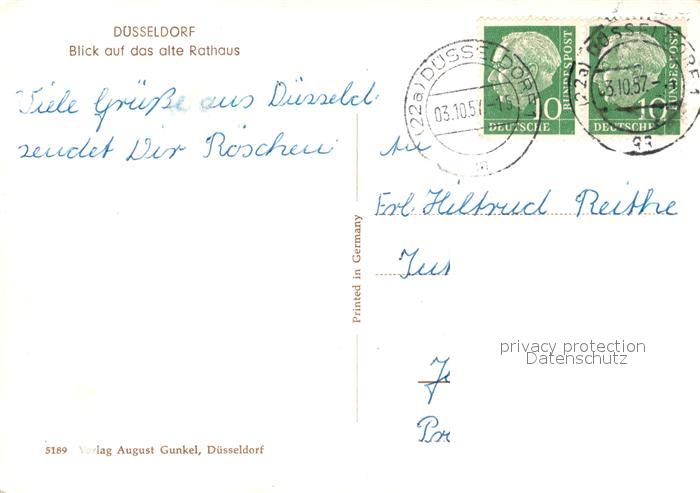 DÜSSELDORF
Blick auf das alte Rathaus
Viele Grüße aus Düsseld
sendet Dir Röschen
(22a) DÜSSELDORF 1
03.10.57
10
DEUTSCHE
BUNDESPOST
(22a) DÜSSELDORF 1
03.10.57
10
DEUTSCHE
BUNDESPOST
An
Frl. Hiltrud Reithe
Printed in Germany
privacy protection
Datenschutz
5189 Verlag August Gunkel, Düsseldorf